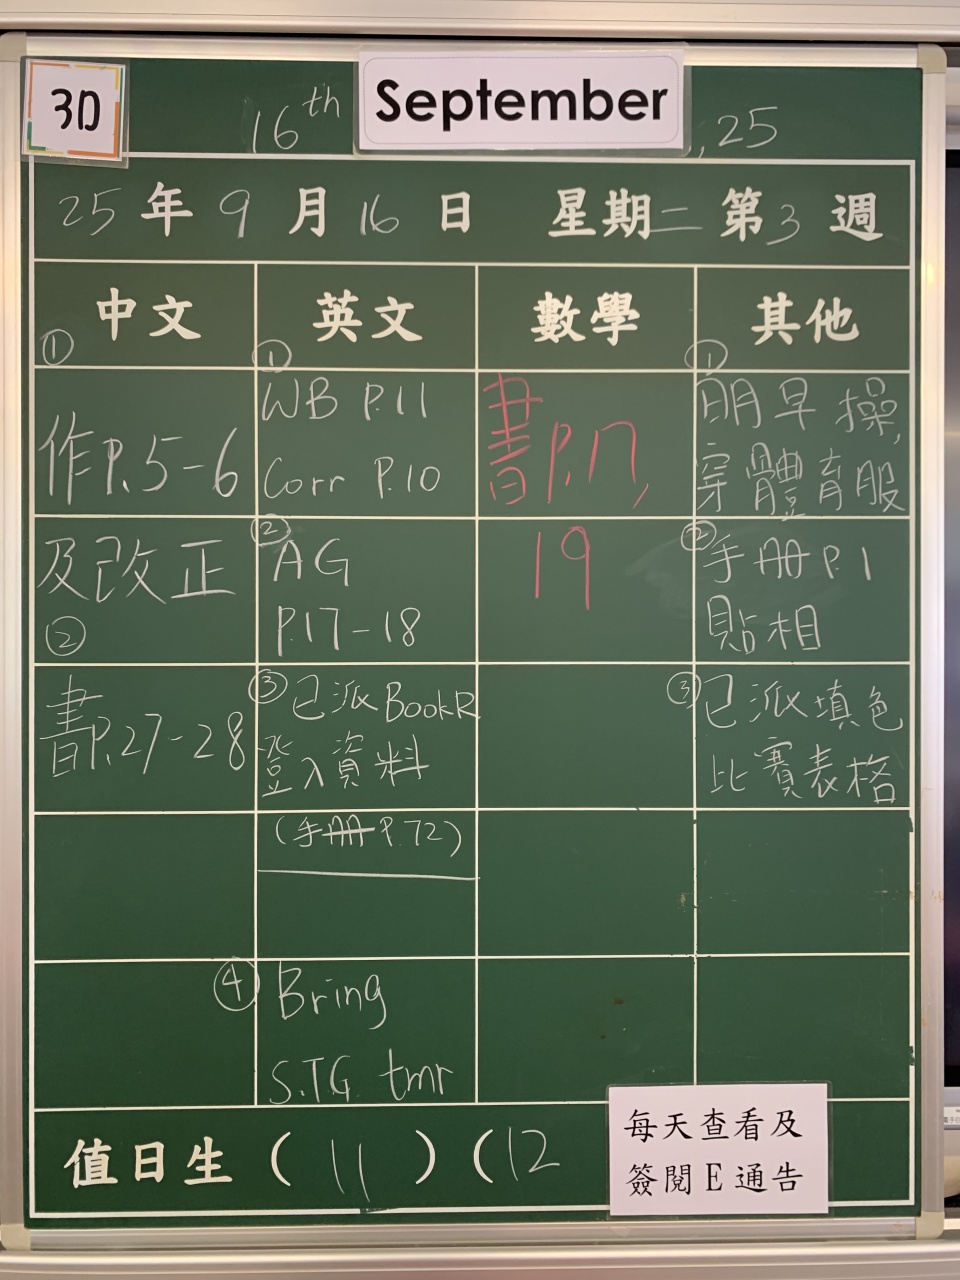 3D
16th September, 25
25年9月16日 星期二 第3週
中文 英文 數學 其他
①
作P.5-6
及改正
②
書P.27-28
①
WB P.11
Corr P.10
②
AG
P.17-18
③ 已派BookR
登入資料
(手冊P.72)
④ Bring
S.TG tmr
書P.17,
19
①
明早操,
穿體育服
②
手冊P.1
貼相
③ 已派填色
比賽表格
值日生(11)(12
每天查看及
簽閱E通告